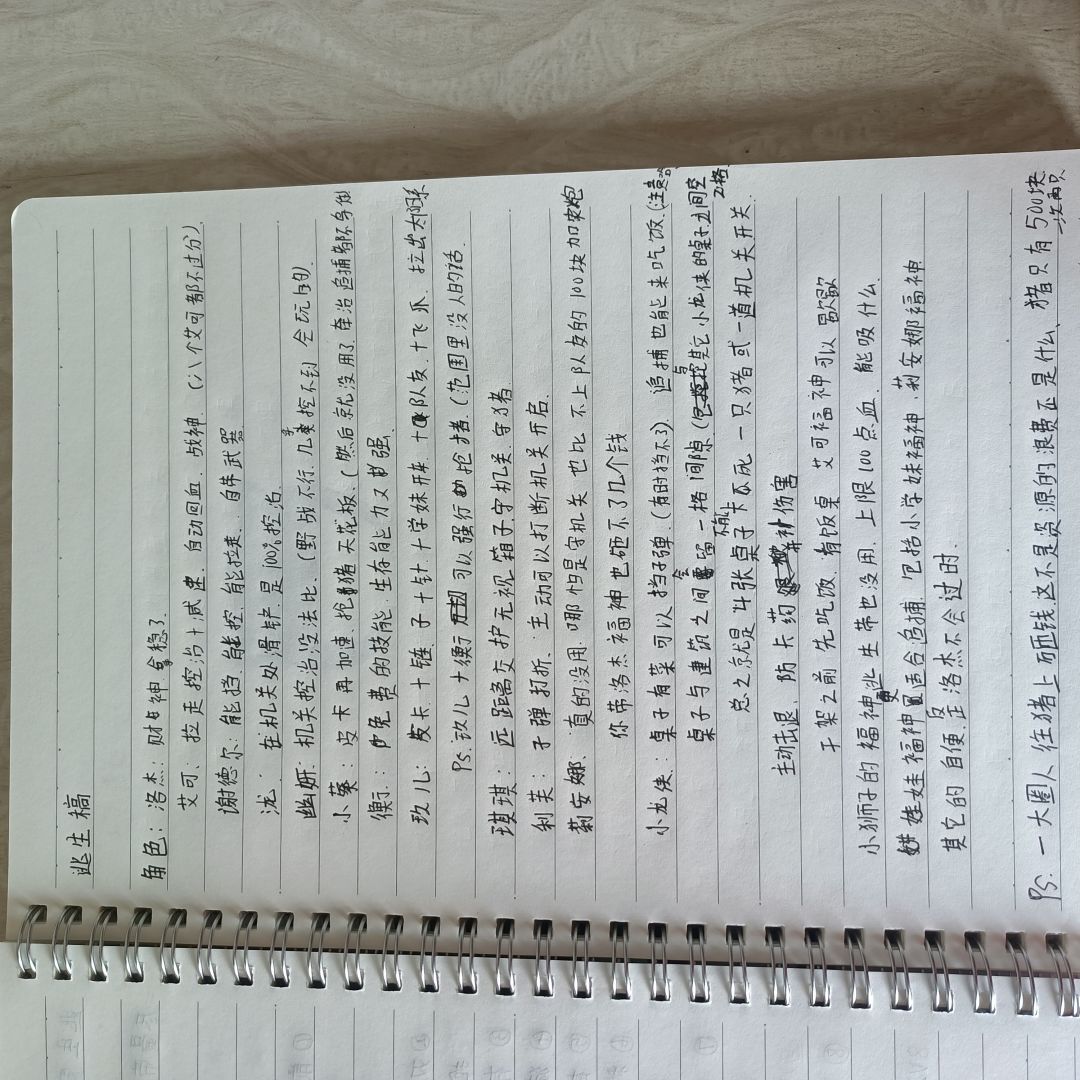 逃生稿
角色：洛杰：财神 稳了
艾可：拉走控治十减速. 自动回血. 战神. (八个艾可都不过分)
谢德尔：能挡. 能控. 能拉走. 自带武器
泷：在机关处滑铲是100%控治.
幽妍：机关控治没法比. (野战不行. 几乎控不到) 会玩的.
小葵：皮卡再加速. 抢猪天花板. (然后就没用了. 牵治追捕都不
免费的技能. 生存能力又 强.
玖儿：皮卡十链子十针十学妹开来. 十队友. 十飞爪. 拉出太阳系
Ps. 玖儿十 可以强行 抢猪. (范围里没人的话.
琪琪：远距离交护无视. 箱子守机关. 守猪
利芙：子弹打折、主动可以打断机关开启.
莉安娜：真的没用. 哪怕是守机关也比不上队友的100块加农炮
你带洛杰福神也砸不了几个钱
小龙侠：桌子有菜可以挡子弹. (有时挡不了) 追捕也能来吃饭. (注意
桌子与建筑之间会留一格间隙 (与其它小龙侠的桌子之间空2格
总之就是4张桌子不能卡死一只猪或一道机关开关.
主动击退、防卡药 补伤害
干架之前先吃饭. 有饭桌艾可福神可以歇歇
小狮子的福神逃生带也没用. 上限100点血. 能吸什么
娃娃福神更适合追捕. 包括小学妹福神. 莉安娜福神
其它的自便. 反正洛杰不会过时.
Ps. 一大圈人往猪上砸钱这不是资源的浪费还是什么、猪只有500块
一次两只